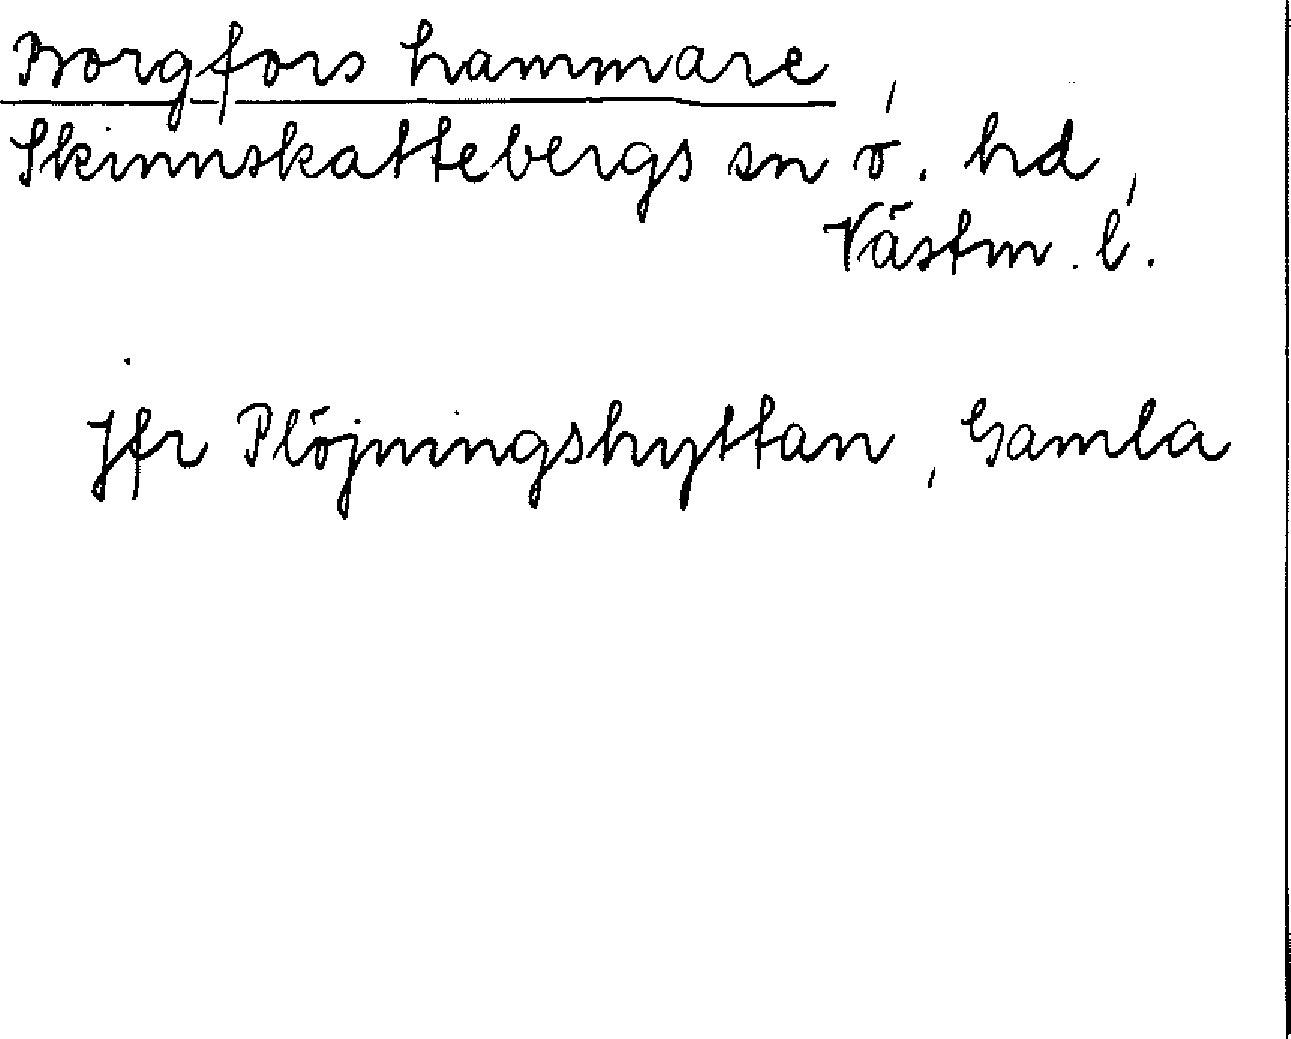 Borgfors hammare,
Skinnskattebergs sn o. hd,
Västm. l.
Jfr Plöjningshyttan, Gamla